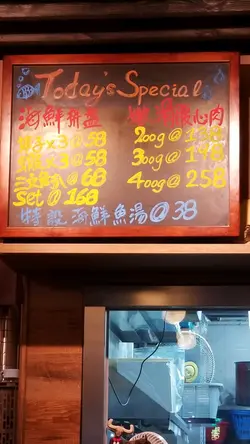 Today's Special
海鮮拼盤
x3@58
x3@58
三文魚扒@68
Set@168
眼心肉
200g@138
300g@198
400g@258
特設海鮮魚湯@38